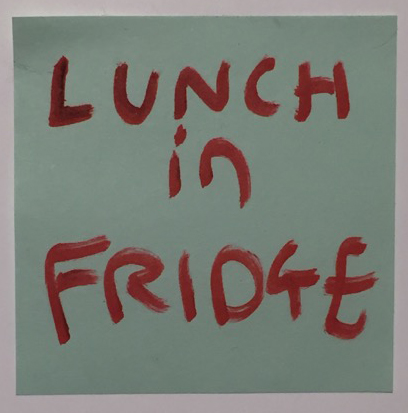 LUNCH
in
FRIDGE